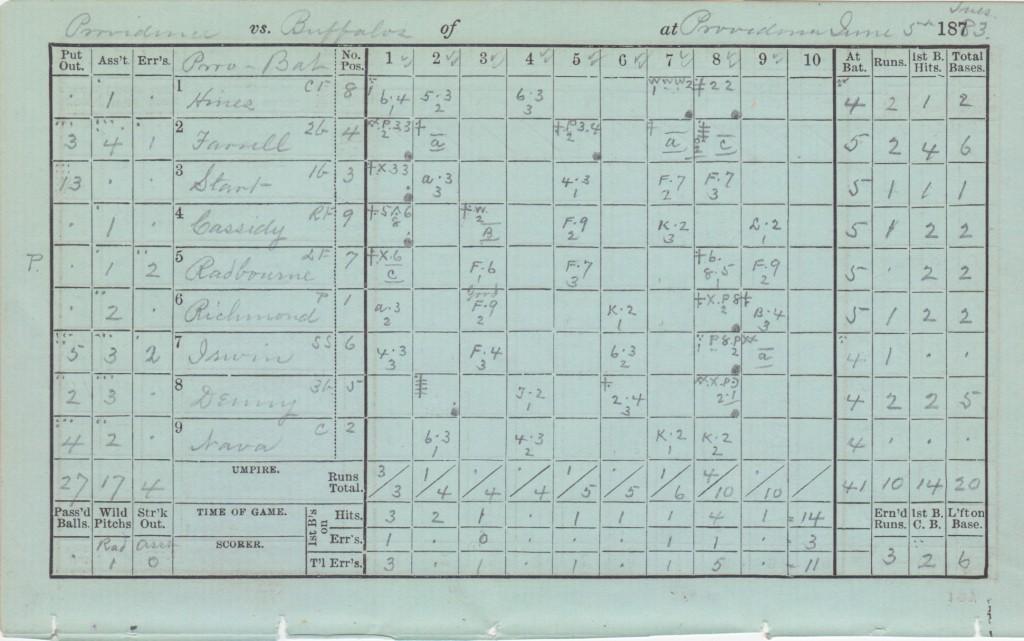 Providence vs. Buffalos of at Providence June 5th 1883. Tues.
Put Out. Ass't. Err's. Prov - Bat No. Pos. 1 2 3 4 5 6 7 8 9 10 At Bat. Runs. 1st B. Hits. Total Bases.
· 1 · 1 Hines CF 8 6·4 5·3 2 6·3 3 WWW2 1 ‡22 4 2 1 2
3 4 1 2 Farrell 2b 4 P.33 2 † a †P3.4 2 † a c 5 2 4 6
13 · · 3 Start 1b 3 †X.33 a·3 3 4·3 1 F·7 2 F·7 3 5 1 1 1
· 1 · 4 Cassidy RF 9 †5A6 8 †W. 2 B F·9 2 K·2 3 L·2 1 5 1 2 2
P. · 1 2 5 Radbourne LF 7 †X.6 c F·6 1 F·7 3 †6. 8·5 F·9 2 5 · 2 2
· 2 · 6 Richmond P 1 a·3 2 Good F·9 2 K·2 1 †X.P8 2 † B·4 3 5 1 2 2
5 3 2 7 Irwin SS 6 4·3 3 F·4 3 6·3 2 P8.P 2 XX a 4 1 · ·
2 3 · 8 Denny 3b 5 J·2 1 † 2·4 3 XX.P 2·1 4 2 2 5
4 2 · 9 Nava C 2 6·3 1 4·3 2 K·2 1 K·2 2 4 · · ·
27 17 4 UMPIRE. Runs Total. 3/3 1/4 ·/4 ·/4 1/5 ·/5 1/6 4/10 ·/10 / 41 10 14 20
Pass'd Balls. Wild Pitchs Str'k Out. TIME OF GAME. 1st B's on Hits. 3 2 1 · 1 1 1 4 1 = 14 Ern'd Runs. 1st B. C. B. L'ft on Base.
Rad SCORER. Err's. 1 · 0 · · · 1 1 · - 3
· 1 0 T'l Err's. 3 · 1 · 1 · 1 5 · - 11 3 2 6